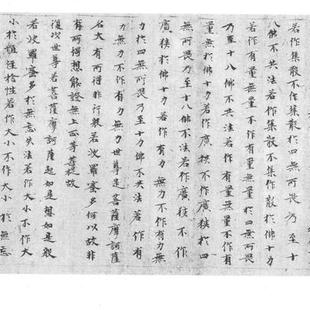 若作集散不作集散於四無所畏乃至十
八佛不共法若作集散不集作散於佛十力
若作有量無量不作有量無量於四無所畏
乃至十八佛不共法若作有量無量不作有
量無量於佛十力若作廣狹不作廣狹於四
無所畏乃至十八佛不共法若作廣狹不作
廣狹於佛十力若作有力無力不作有力無
力於四無所畏乃至十八佛不共法若作有
力無力不作有力無力世尊是菩薩摩訶薩
名大有所得非行般若波羅蜜多何以故非
有所得想能證無上正等菩提故
復次世尊若菩薩摩訶薩起如是想如是般
若波羅蜜多於無忘失法若作大小不作大
小於恒住捨性若作大小不作大小於無忘